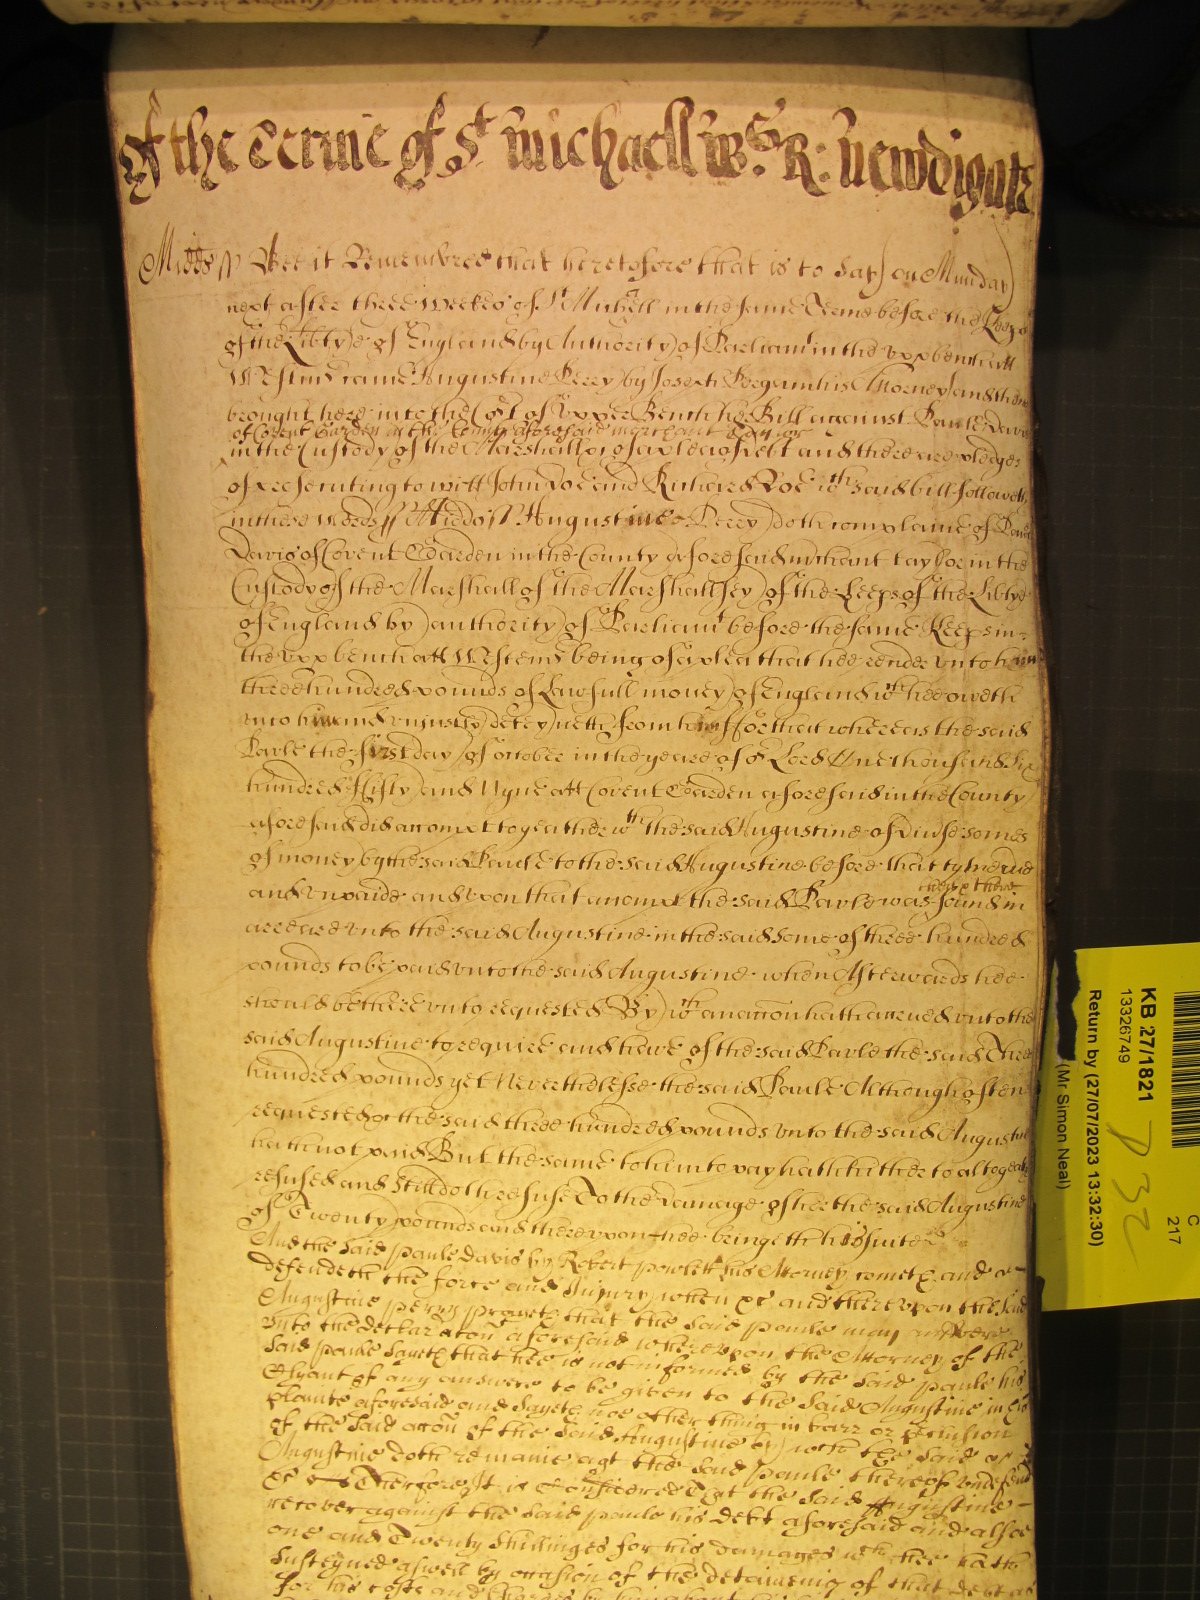 Of the Terme of St Michaell 1659 R: Newdigate
Midds ss Bee it Remembred that heretofore that is to say on Munday
next after three weekes of St Michell in the same Terme before the Keeps
of the Libtye of England by Authority of Parliamt in the upp bench att
Westmr came Augustine Perry by Joseph his Attorney and then
brought here into the Cort of Upper Bench his Bill against Paule Davis
of Covent Garden in the County aforesaid merchant Taylor
in the Custody of the Marshall &c of a plea of debt and there are pledges
of prosecuting to witt John Doe and Richard Roe wch said bill followeth
in these words ss Midds ss Augustine Perry doth complaine of Paule
Davis of Covent Garden in the County aforesaid mrchant taylor in the
Custody of the Marshall of the Marshallsey of the Keeps of the Libtye
of England by authority of Parliamt before the same Keeps in
the upp bench att Westmr being of a plea that hee render unto him
three hundred pounds of Lawfull money of England wch hee oweth
unto him and unjustly deteyneth from him for that whereas the said
Paule the first day of october in the yeare of or Lord One thousand Six
hundred Fifty and Nyne att Covent Garden aforesaid in the County
aforesaid did accompt togeather wth the said Augustine of divse somes
of money by the said Paule to the said Augustine before that tyme due
and unpaide and upon that accompt the said Paule was then &amp; there found in
arreare unto the said Augustine in the said some of three hundred
pounds to be paid unto the said Augustine when Afterwards hee
should be thereunto requested By wch an accon hath acrued unto the
said Augustine to require and have of the said Paule the said Three
hundred pounds yet Neverthelesse the said Paule Although often
requested the said three hundred pounds unto the said Augustine
hath not paid But the same to him to pay hath hitherto altogeathr
refused and Still doth refuse To the damage of him the said Augustine
of Twenty pounds and thereupon hee bringeth his suite &c
And the said Paule Davis by Robert Powlett his Attorney cometh and
defendeth the force and Injury when &c and thereupon the said
Augustine Perry prayeth that the said Paule may answere
unto the declaracon aforesaid whereupon the Attorney of the
said Paule sayeth that hee is not informed by the said Paule his
Clyant of any answere to be given to the said Augustine in his
plainte aforesaid and sayeth noe other thing in barr or preclusion
of the said accon of the said Augustine by which the said
Augustine doth remaine agt the said Paule thereof undefended
&c Therefore It is Considered That the said Augustine
recover against the said Paule his debt aforesaid and alsoe
one and Twenty shillinges for his damages wch hee hath
susteyned aswell by occasion of the detaineing of that debt as
for his costs and Charges by him about
KB 27/1821
13326749
Return by (27/07/2023 13:32:30)
(Mr Simon Neal)
C
217